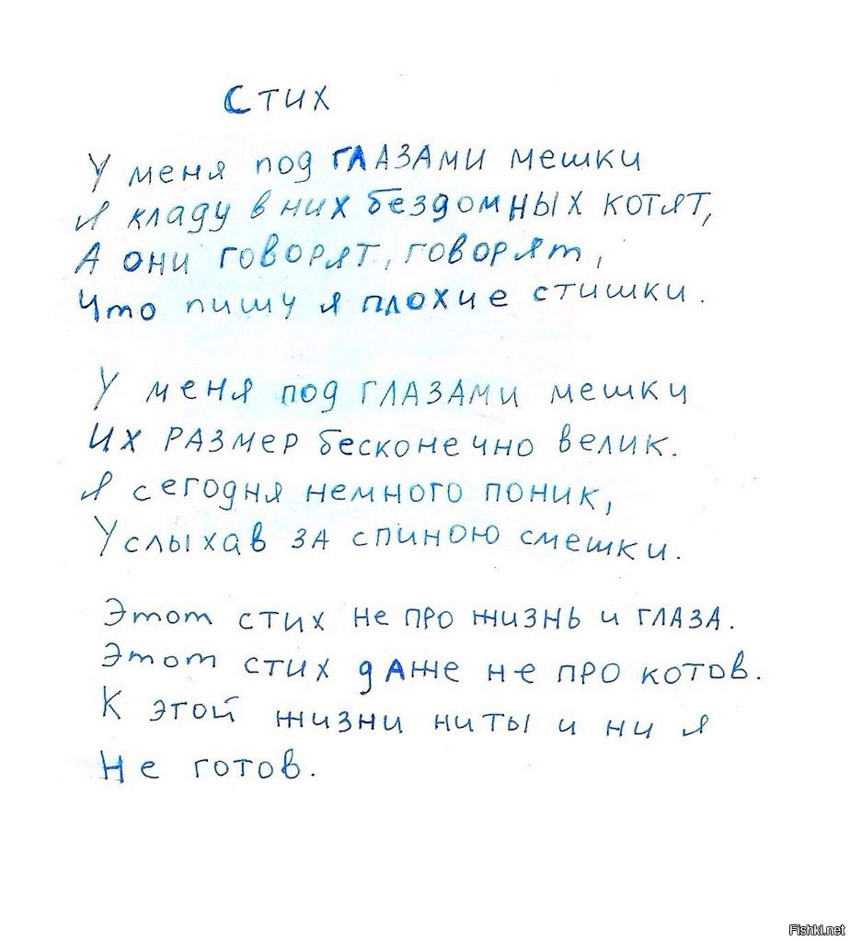 Стих
У меня под глазами мешки
Я кладу в них бездомных котят,
А они говорят, говорят,
Что пишу я плохие стишки.
У меня под глазами мешки
Их размер бесконечно велик.
Я сегодня немного поник,
Услыхав за спиною смешки.
Этот стих не про жизнь и глаза.
Этот стих даже не про котов.
К этой жизни ни ты и ни я
Не готов.
Fishki.net